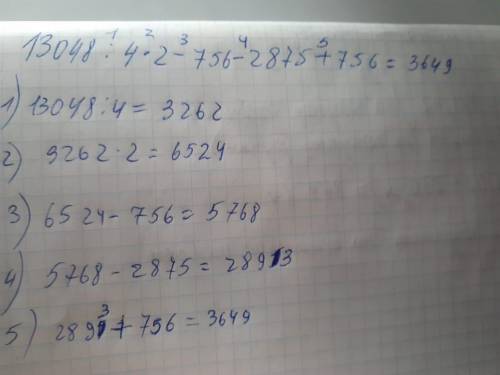 13048 : 4 · 2 - 756 - 2875 + 756 = 3649
1) 13048 : 4 = 3262
2) 3262 · 2 = 6524
3) 6524 - 756 = 5768
4) 5768 - 2875 = 2893
5) 2893 + 756 = 3649